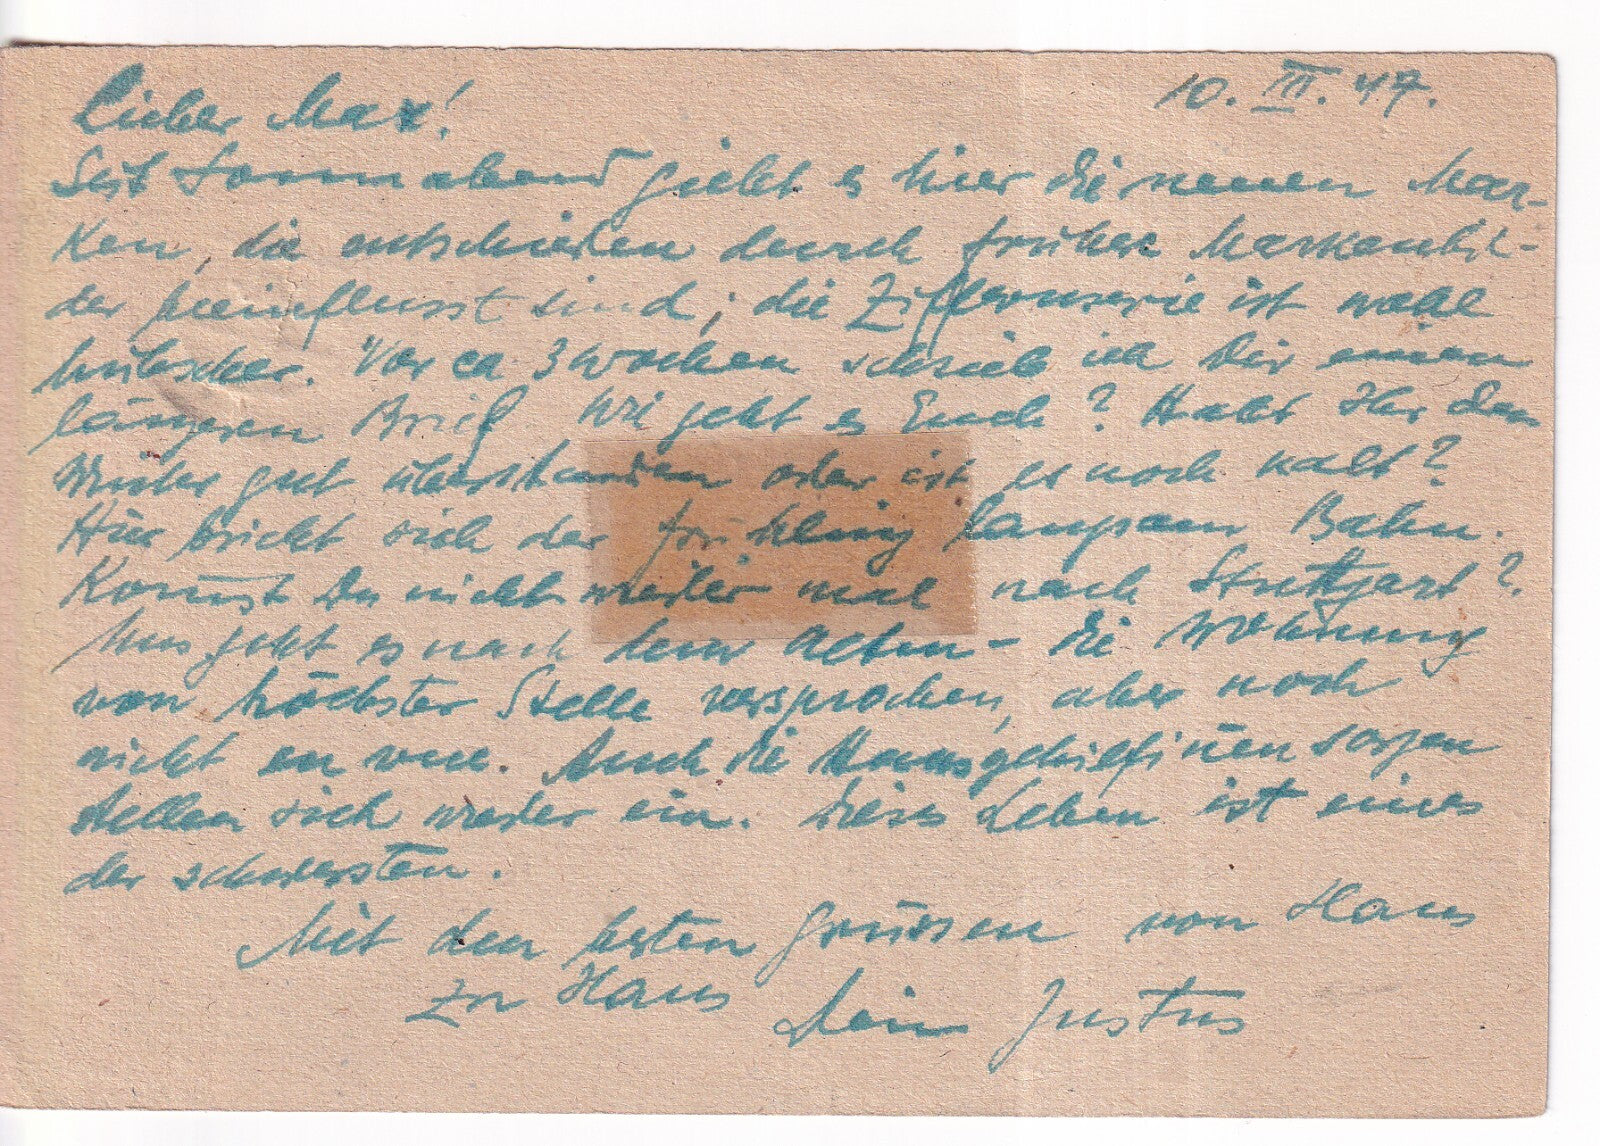 10. III. 47.
Lieber Max!
Seit Sonnabend giebt es hier die neuen Mar-
ken, die entschieden durch frühere Markenbil-
der beeinflusst sind; die Ziffernserie ist wohl
hübscher. Vor ca 3 Wochen schrieb ich Dir einen
längeren Brief. Wie geht es Euch? Habt Ihr den
Winter gut überstanden oder ist es noch kalt?
Hier bricht sich der Frühling langsam Bahn.
Kommst Du nicht wieder mal nach Stuttgart?
Uns geht es nach dem Alten – die Wohnung
von höchster Stelle versprochen, aber noch
nicht en vue. Auch die Hausgehilfinnensorgen
stellen sich wieder ein. Dieses Leben ist eines
der schwersten.
Mit den besten Grüssen von Haus
zu Haus Dein Justus